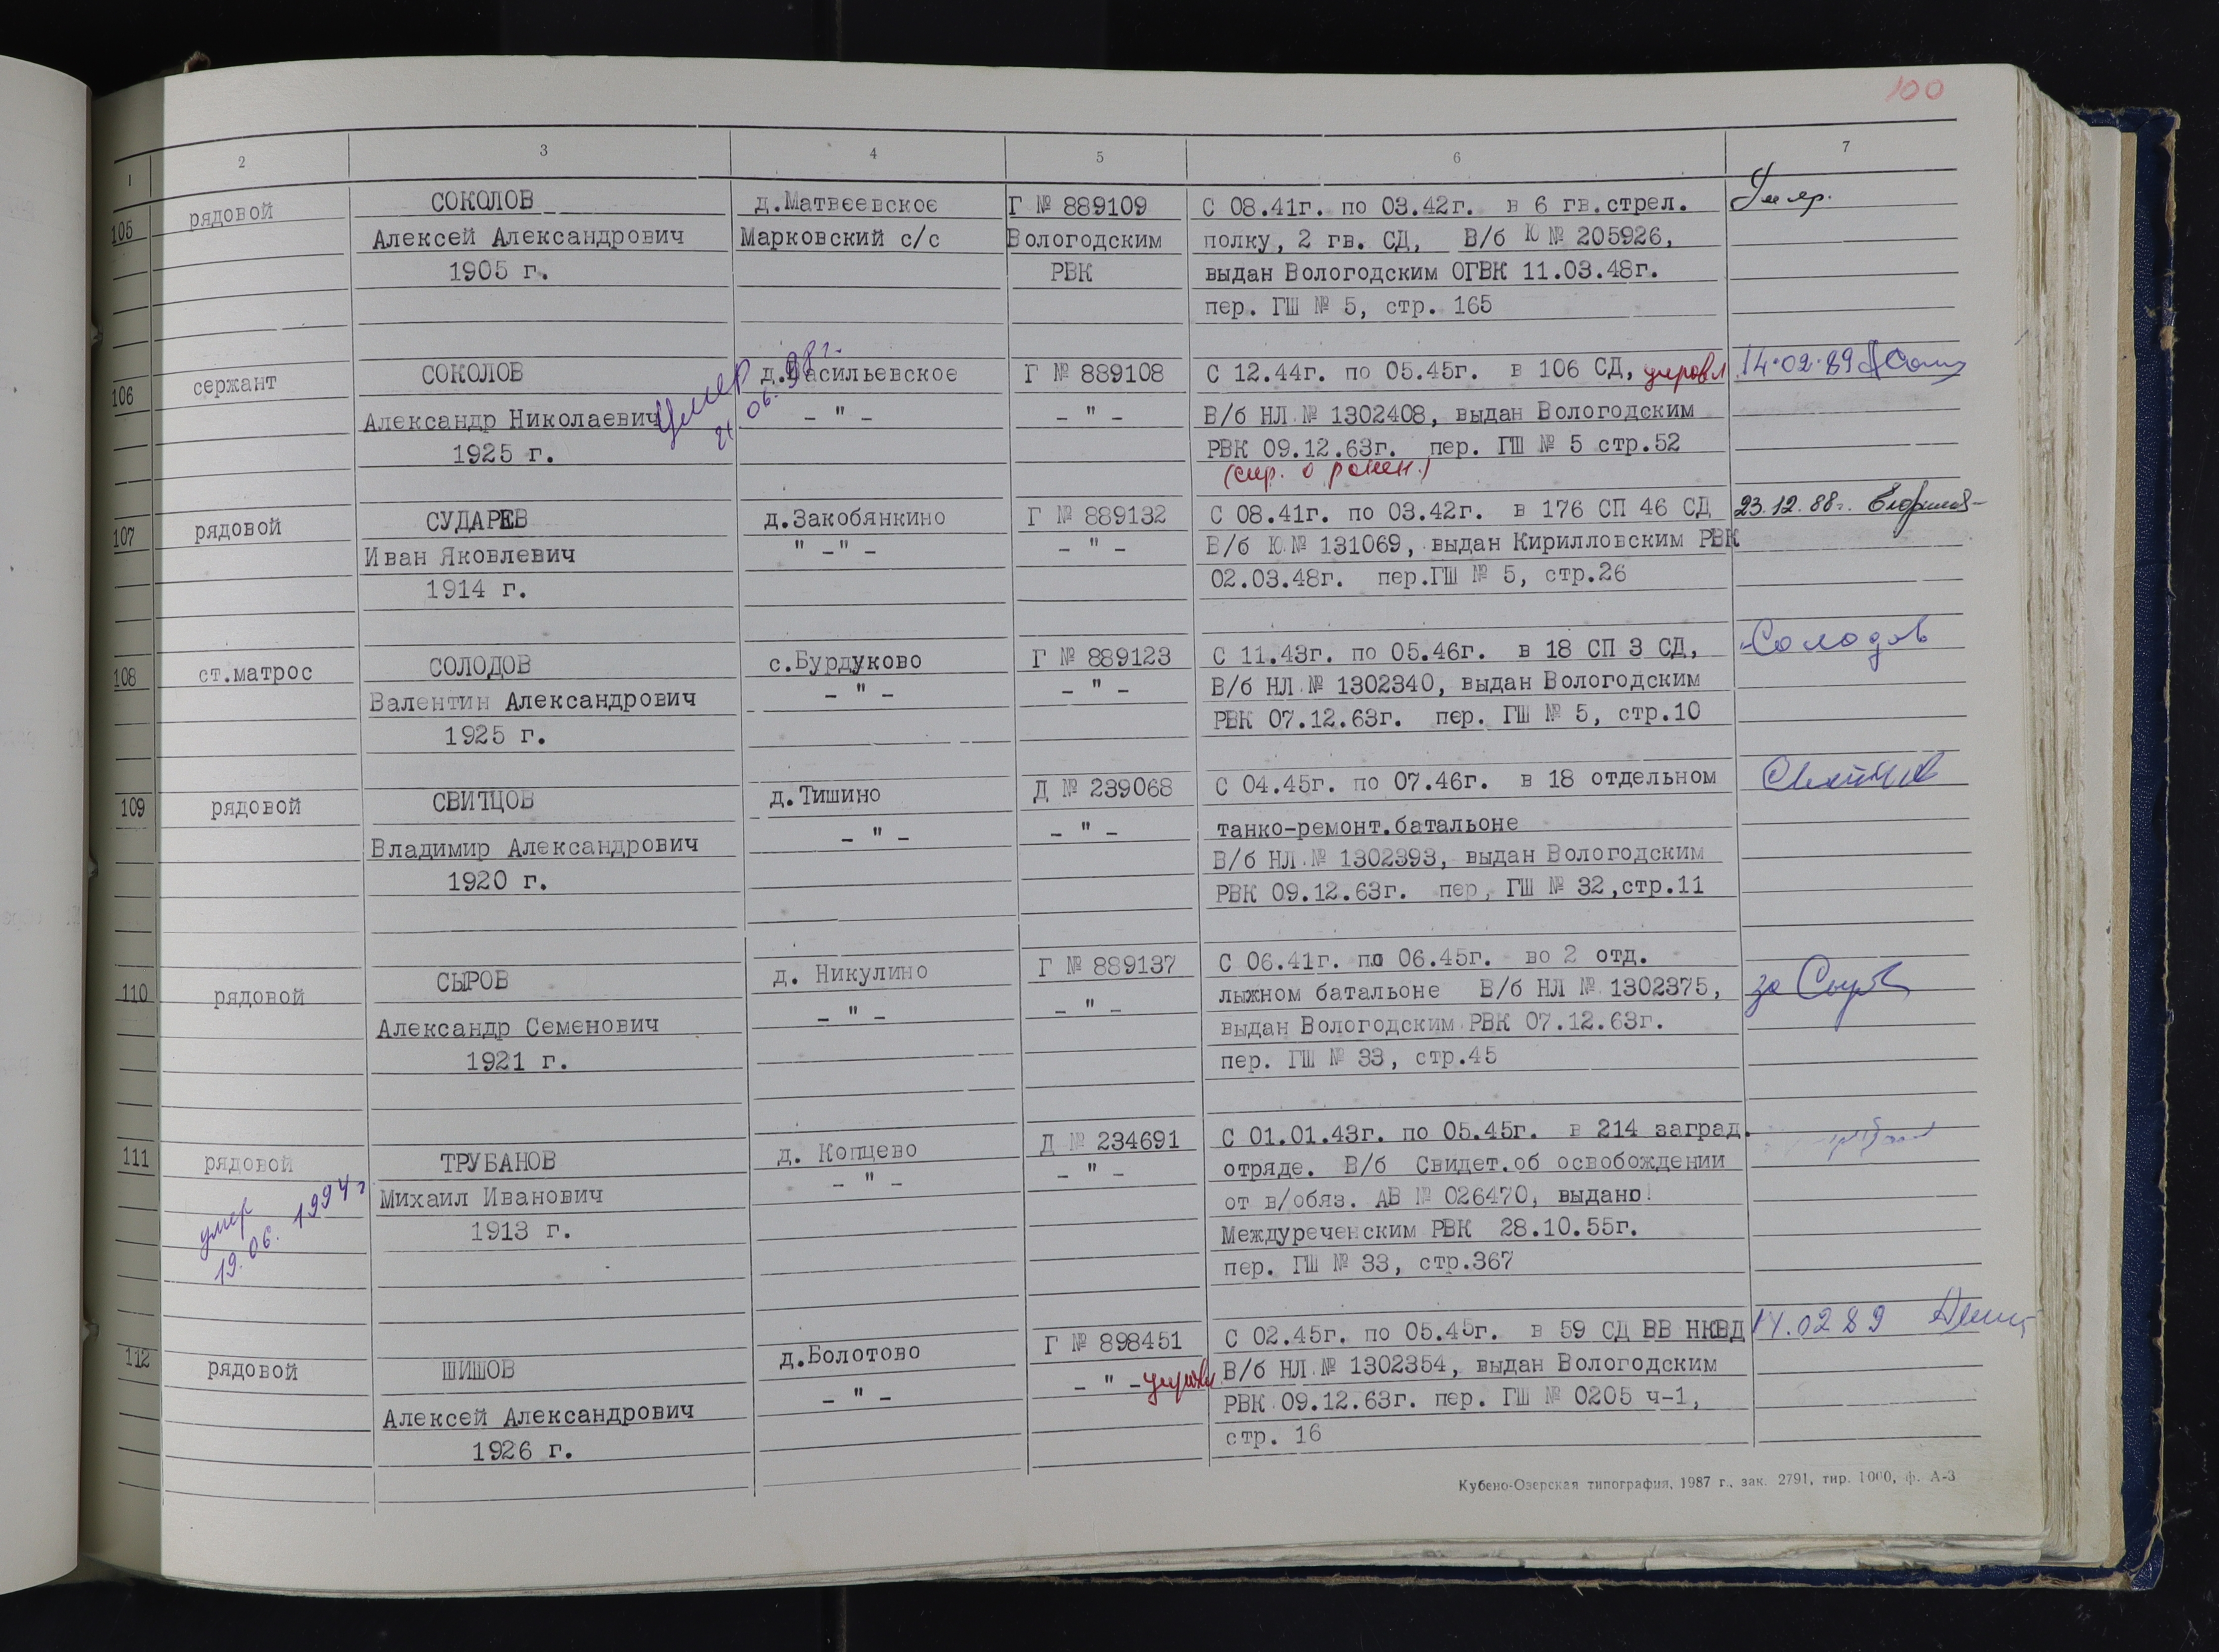 100
1 2 3 4 5 6 7
105 рядовой СОКОЛОВ д.Матвеевское Г № 889109 С 08.41г. по 03.42г. в 6 гв.стрел. Умер.
Алексей Александрович Марковский с/с Вологодским полку, 2 гв. СД, В/б Ю № 205926,
1905 г. РВК выдан Вологодским ОГВК 11.03.48г.
пер. ГШ № 5, стр. 165
106 сержант СОКОЛОВ д.Васильевское Г № 889108 С 12.44г. по 05.45г. в 106 СД, 14.02.89
Александр Николаевич умер 21.06.98г. - " - - " - В/б НЛ № 1302408, выдан Вологодским
1925 г. РВК 09.12.63г. пер. ГШ № 5 стр.52
(спр. о ранен.)
107 рядовой СУДАРЕВ д.Закобянкино Г № 889132 С 08.41г. по 03.42г. в 176 СП 46 СД 23.12.88г.
Иван Яковлевич " -"- - " - В/б Ю № 131069, выдан Кирилловским РВК
1914 г. 02.03.48г. пер.ГШ № 5, стр.26
108 ст.матрос СОЛОДОВ с.Бурдуково Г № 889123 С 11.43г. по 05.46г. в 18 СП 3 СД, Солодов
Валентин Александрович - " - - " - В/б НЛ № 1302340, выдан Вологодским
1925 г. РВК 07.12.63г. пер. ГШ № 5, стр.10
109 рядовой СВИТЦОВ д.Тишино Д № 239068 С 04.45г. по 07.46г. в 18 отдельном
- " - - " - танко-ремонт.батальоне
Владимир Александрович В/б НЛ № 1302393, выдан Вологодским
1920 г. РВК 09.12.63г. пер, ГШ № 32,стр.11
110 рядовой СЫРОВ д. Никулино Г № 889137 С 06.41г. по 06.45г. во 2 отд.
- " - - " - лыжном батальоне В/б НЛ № 1302375, за
Александр Семенович выдан Вологодским РВК 07.12.63г.
1921 г. пер. ГШ № 33, стр.45
111 рядовой ТРУБАНОВ д. Копцево Д № 234691 С 01.01.43г. по 05.45г. в 214 заград.
Михаил Иванович - " - - " - отряде. В/б Свидет.об освобождении
умер 1913 г. от в/обяз. АВ № 026470, выдано
19.06.1994г Междуреченским РВК 28.10.55г.
пер. ГШ № 33, стр.367
112 рядовой ШИШОВ д.Болотово Г № 898451 С 02.45г. по 05.45г. в 59 СД ВВ НКВД 14.02 89
- " - - " - В/б НЛ № 1302354, выдан Вологодским
Алексей Александрович РВК 09.12.63г. пер. ГШ № 0205 ч-1,
1926 г. стр. 16
Кубено-Озерская типография, 1987 г., зак. 2791, тир. 1000, ф. А-3